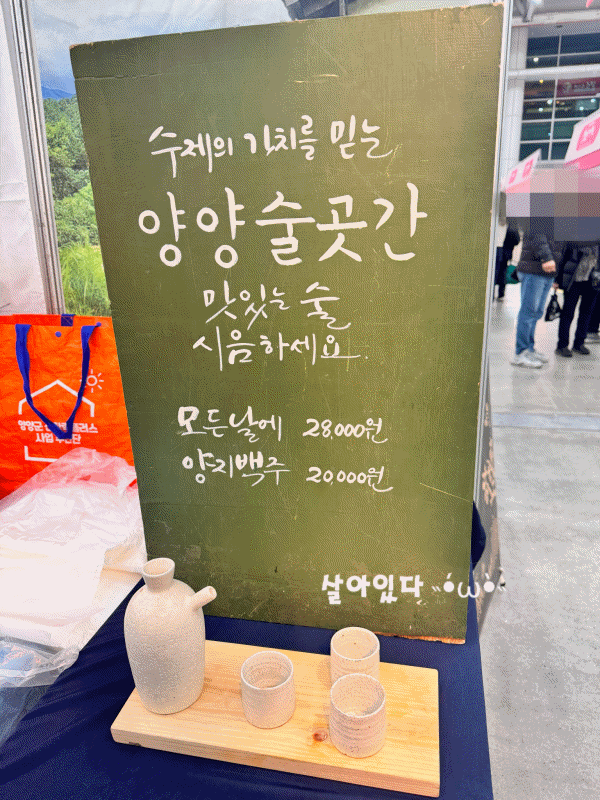 수제의 가치를 믿는
양양 술곳간
맛있는 술
시음하세요.
모든날에 28,000원
양지백주 20,000원
살아있다
영양군
사업